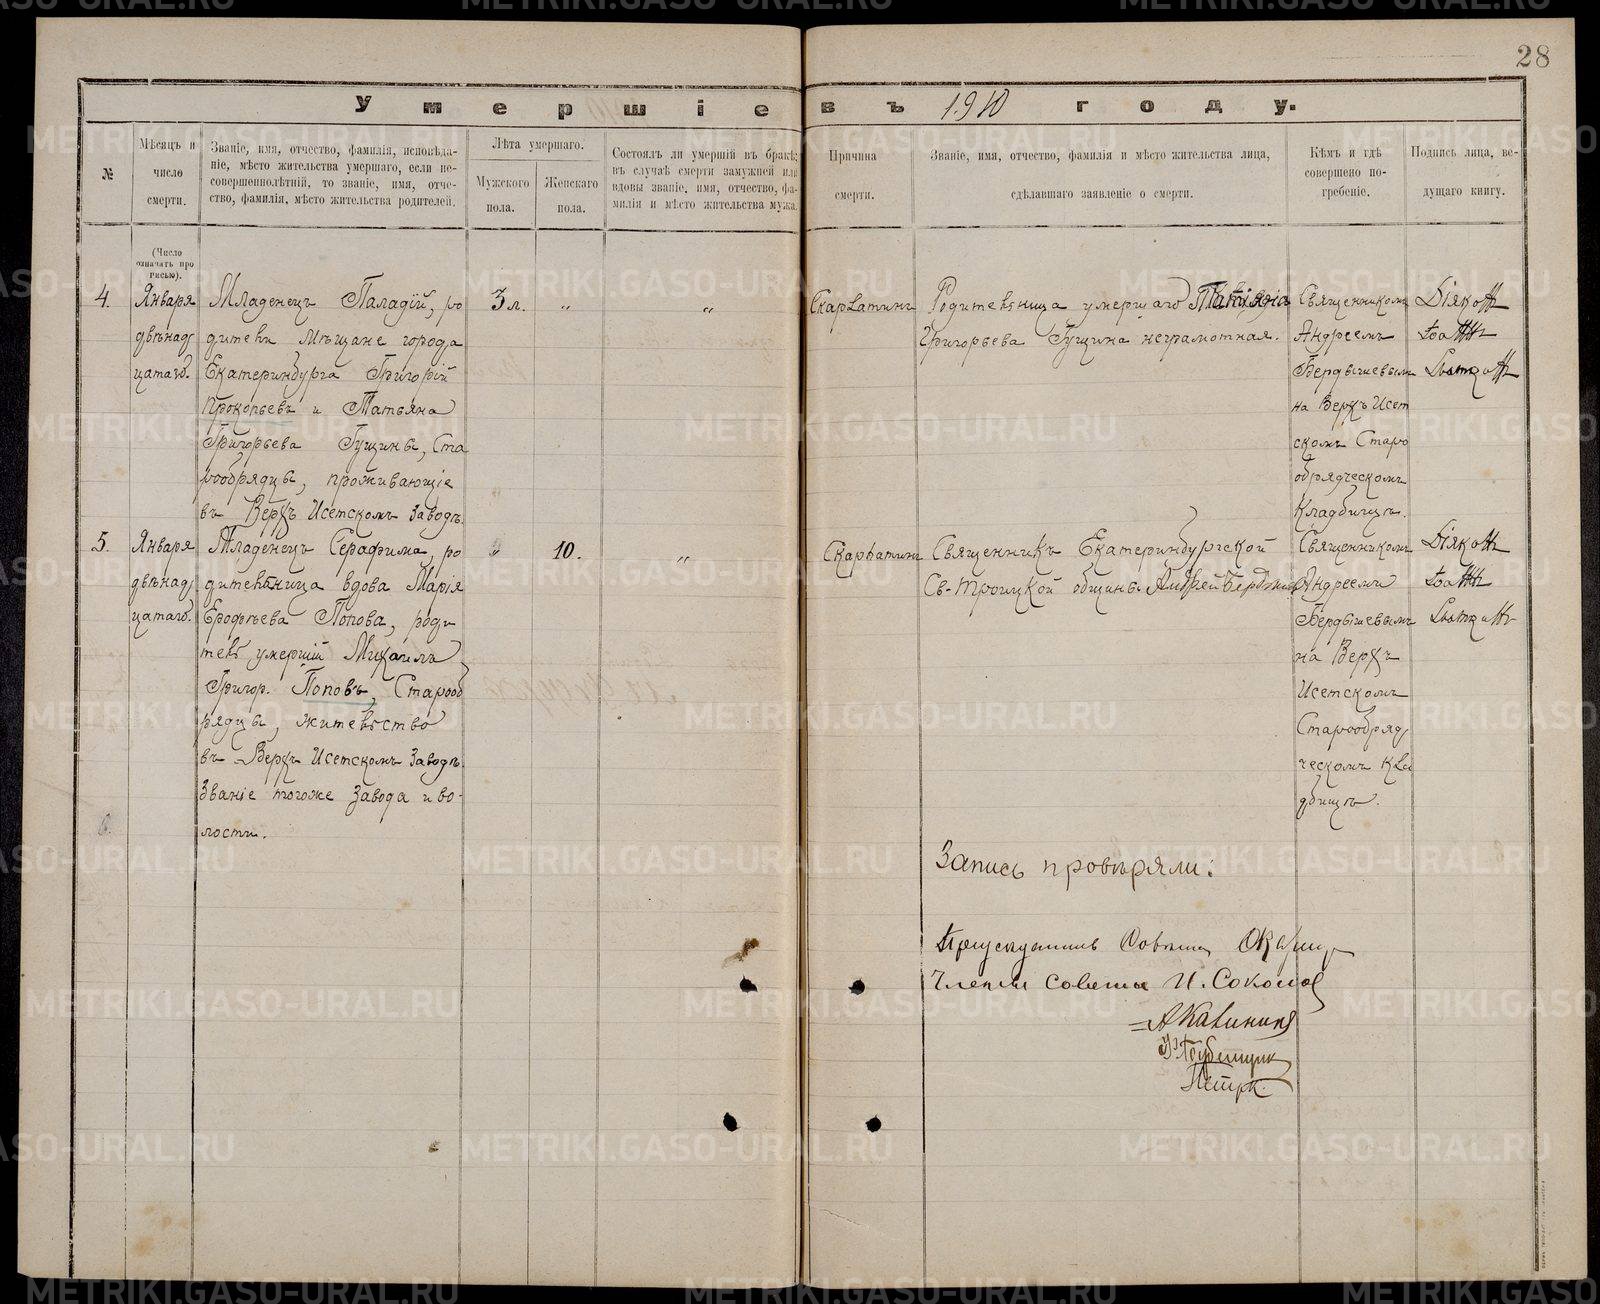 28
Умершіе въ 1910 году.
№
Мѣсяцъ и
число
смерти.
Званіе, имя, отчество, фамилія, исповѣда-
ніе, мѣсто жительства умершаго, если не-
совершеннолѣтній, то званіе, имя, отче-
ство, фамилія, мѣсто жительства родителей.
Лѣта умершаго.
Мужского
пола.
Женскаго
пола.
Состоялъ ли умершій въ бракѣ;
въ случаѣ смерти замужней или
вдовы званіе, имя, отчество, фа-
милія и мѣсто жительства мужа.
Причина
смерти.
Званіе, имя, отчество, фамилія и мѣсто жительства лица,
сдѣлавшаго заявленіе о смерти.
Кѣмъ и гдѣ
совершено по-
гребеніе.
Подпись лица, ве-
дущаго книгу.
(Число
означать про
писью).
4.
Января
двѣнад
цатаго.
Младенецъ Паладій, ро
дители Мѣщане города
Екатеринбурга Григорій
Прокопьевъ и Татьяна
Григорьева Гущины, Ста
рообрядцы, проживающіе
въ Верхъ Исетскомъ Заводѣ.
3 л.
"
"
Скарлатинъ
Родительница умершаго Татіяна
Григорьева Гущина неграмотная.
Священникомъ
Андреемъ
Бердышевымъ
на Верхъ Исет
скомъ Старо
обрядческомъ
Кладбищѣ.
Діякон
5.
Января
двѣнад
цатаго.
Младенецъ Серафима, ро
дительница вдова Марія
Ерофѣева Попова, роди
тель умершій Михаилъ
Григор. Поповъ, Старооб
рядцы, жительство
въ Верхъ Исетскомъ Заводѣ.
Званіе тогоже Завода и во-
лости.
"
10.
"
Скарлатинъ
Священникъ Екатеринбургской
Св-Троицкой общины Андрей Бердышев
Священникомъ
Андреемъ
Бердышевымъ
на Верхъ
Исетскомъ
Старообряд
ческомъ Кла
дбищѣ.
Діяконъ
6.
Запись провѣряли:
Предсѣдатель Совѣта
Члены Совѣта И. Соколов
А Калинин
METRIKI.GASO-URAL.RU